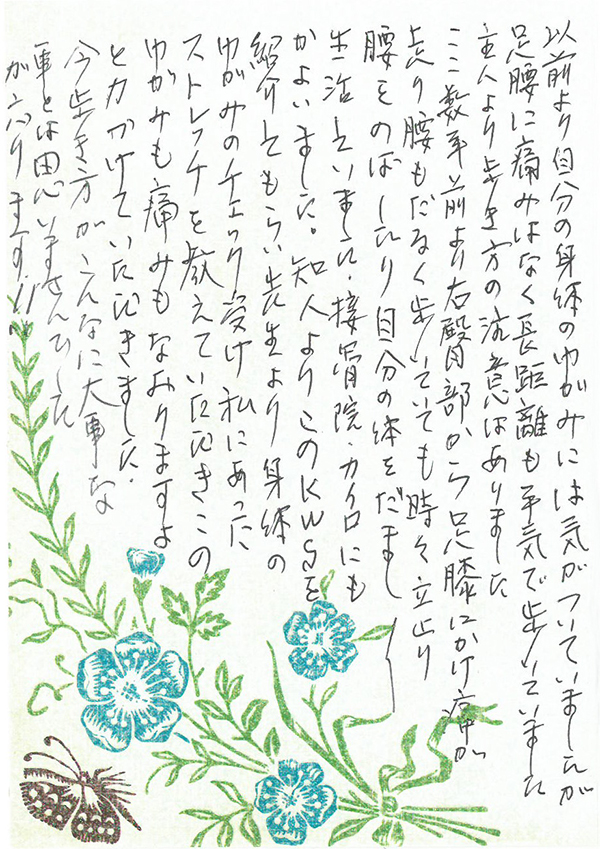 以前より自分の身体のゆがみには気がついていましたが
足腰に痛みはなく長距離も平気で歩いていました
主人より歩き方の注意はありました
ここ数年前より右臀部から足膝にかけ痛が
走り腰もだるく歩いていても時々立止り
腰をのばしたり自分の体をだまし
生活していました。接骨院・カイロにも
かよいました。知人よりこのKWSを
紹介してもらい先生より身体の
ゆがみのチェック受け私にあった
ストレッチを教えていただきこの
ゆがみも痛みもなおりますよ
と力かけていただきました。
今歩き方がこんなに大事な
事とは思いませんでした
がんばります!!